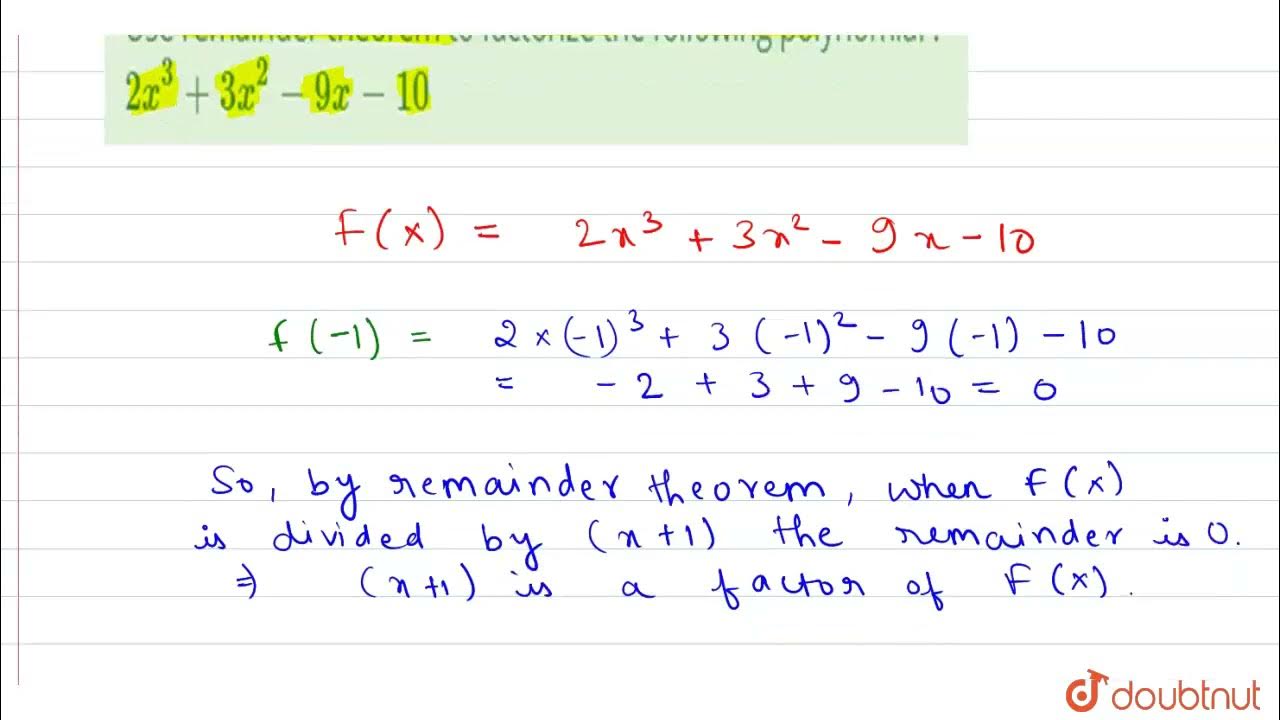 Use remainder theorem to factorize the following polynomial:
2x³ + 3x² − 9x − 10
F(x) = 2x³ + 3x² − 9x − 10
f(-1) = 2×(-1)³ + 3(-1)² − 9(-1) − 10
= -2 + 3 + 9 − 10 = 0
So, by remainder theorem, when F(x)
is divided by (x+1) the remainder is 0.
⇒ (x+1) is a factor of F(x).
doubtnut